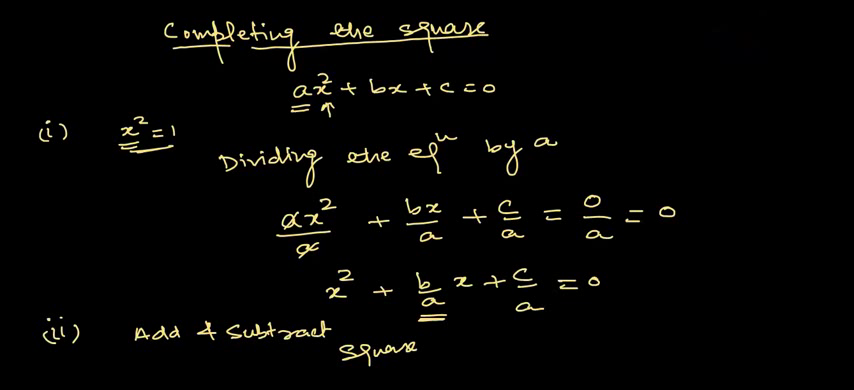 Completing the square
ax² + bx + c = 0
(i) x² = 1
Dividing the eqⁿ by a
ax²/a + bx/a + c/a = 0/a = 0
x² + b/a x + c/a = 0
(ii) Add & Subtract
square